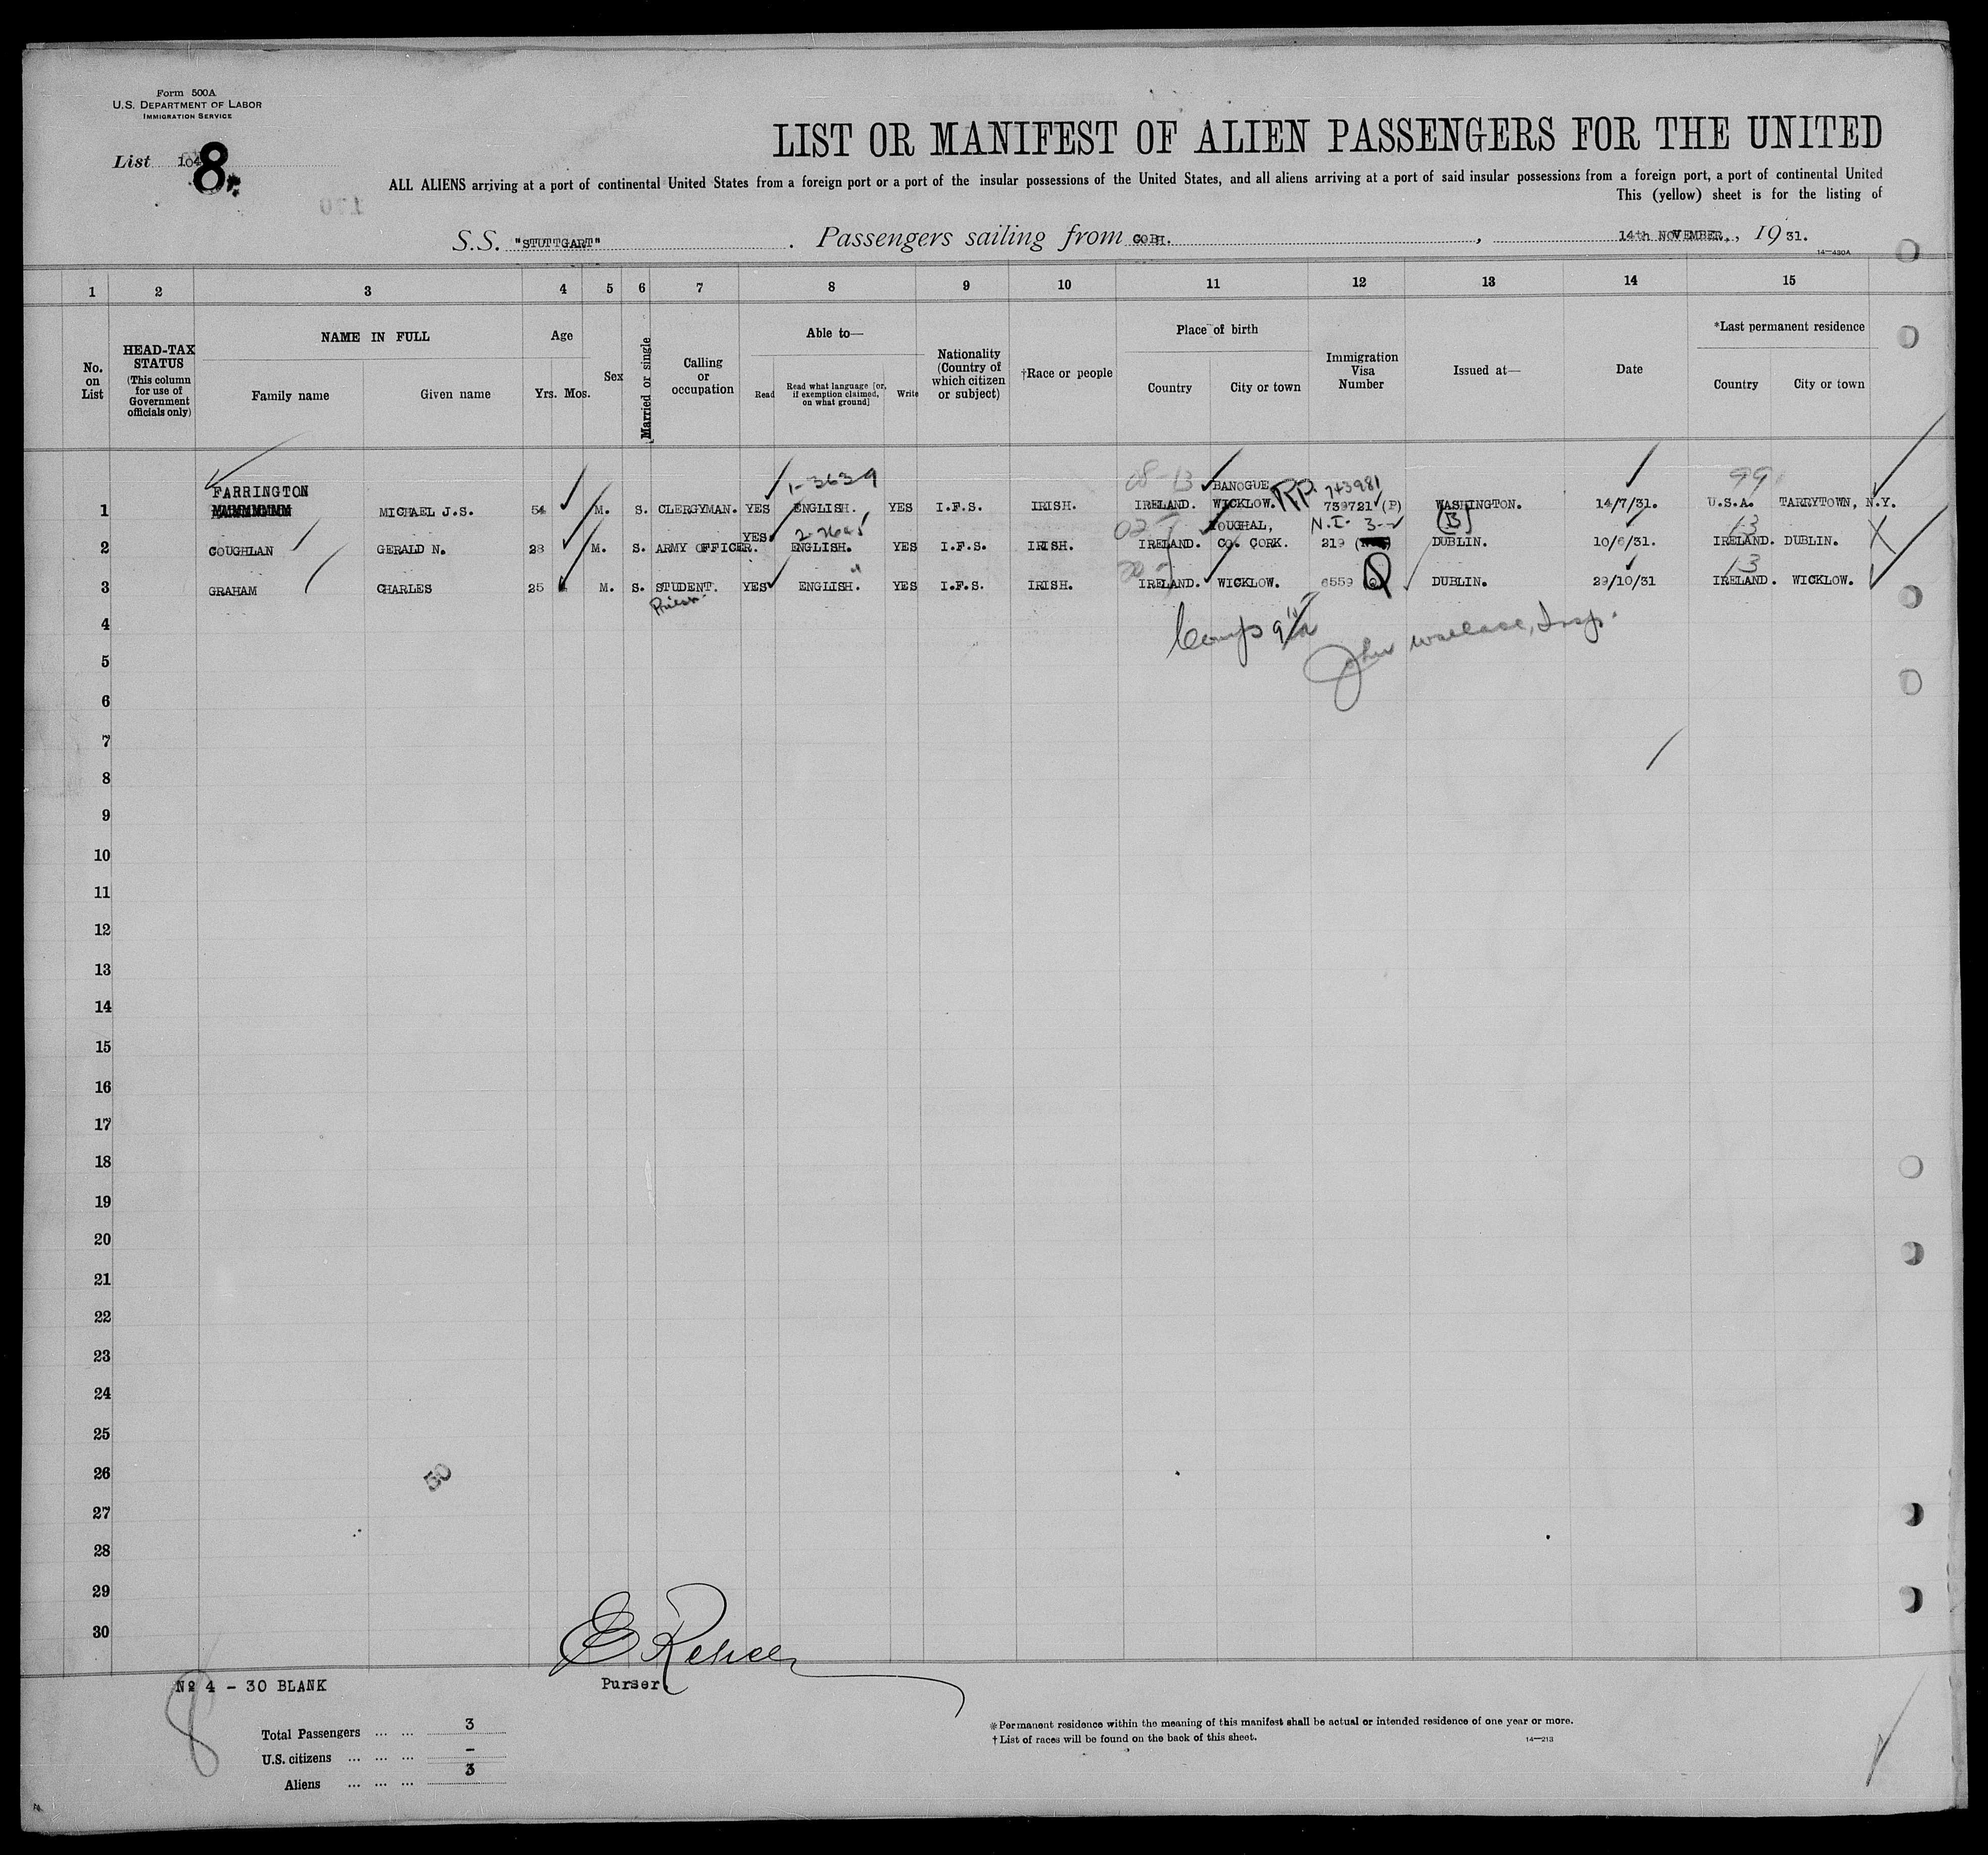 Form 500A
U.S. DEPARTMENT OF LABOR
IMMIGRATION SERVICE
List 104
8
LIST OR MANIFEST OF ALIEN PASSENGERS FOR THE UNITED
ALL ALIENS arriving at a port of continental United States from a foreign port or a port of the insular possessions of the United States, and all aliens arriving at a port of said insular possessions from a foreign port, a port of continental United
This (yellow) sheet is for the listing of
S.S. "STUTTGART" . Passengers sailing from COBH. , 14th NOVEMBER., 19 31.
14—430A
1 2 3 4 5 6 7 8 9 10 11 12 13 14 15
No. on List
HEAD-TAX STATUS (This column for use of Government officials only)
NAME IN FULL
Family name Given name
Age
Yrs. Mos.
Sex
Married or single
Calling or occupation
Able to—
Read
Read what language [or, if exemption claimed, on what ground]
Write
Nationality (Country of which citizen or subject)
†Race or people
Place of birth
Country City or town
Immigration Visa Number
Issued at—
Date
*Last permanent residence
Country City or town
1-3639 08-13 BANOGUE RP. 743981 99
FARRINGTON
1 MICHAEL J.S. 54 M. S. CLERGYMAN. YES ENGLISH. YES I.F.S. IRISH. IRELAND. WICKLOW. 739721 (P) WASHINGTON. 14/7/31. U.S.A. TARRYTOWN, N.Y.
YES 2-2645 02 YOUGHAL, N.I. 3- (B) 13
2 COUGHLAN GERALD N. 28 M. S. ARMY OFFICER. ENGLISH. YES I.F.S. IRISH. IRELAND. CO. CORK. 219 DUBLIN. 10/6/31. IRELAND. DUBLIN.
13
3 GRAHAM CHARLES 25 M. S. STUDENT. YES ENGLISH. YES I.F.S. IRISH. IRELAND. WICKLOW. 6559 Q DUBLIN. 29/10/31 IRELAND. WICKLOW.
Priest
4
John Wallace, Insp.
5
6
7
8
9
10
11
12
13
14
15
16
17
18
19
20
21
22
23
24
25
26
50
27
28
29
30
Nº 4 - 30 BLANK
Purser.
8
Total Passengers ... ... 3
U.S. citizens ... ... ... -
Aliens ... ... ... 3
*Permanent residence within the meaning of this manifest shall be actual or intended residence of one year or more.
†List of races will be found on the back of this sheet.
14—213